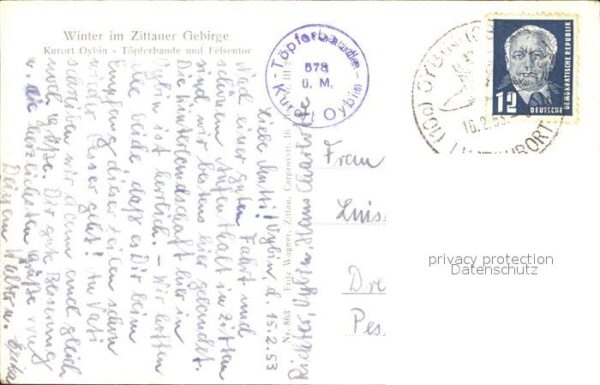 Winter im Zittauer Gebirge
Kurort Oybin - Töpferbaude und Felsentor
Töpferbaude
578
ü. M.
Kurort Oybin
OYBIN
16.2.53
LUFTKURORT
12
DEUTSCHE
DEMOKRATISCHE REPUBLIK
Oybin, d. 15.2.53
Liebe Mutti!
Nach einer guten Fahrt und
schönem Aufenthalt in Zittau
sind wir bestens hier gelandet.
Die Winterlandschaft hier in
Oybin ist herrlich. - Wir hoffen
beide, daß es Dir beim
Empfang dieser Zeilen schon
wieder besser geht! An Vati
schreiben wir dann auch gleich
noch
u. die herzlichsten Grüße von
Deinem Walter u.
Nr. 863
Fritz Wagner, Zittau,
Frau
Luis
Dre
Pes
privacy protection
Datenschutz